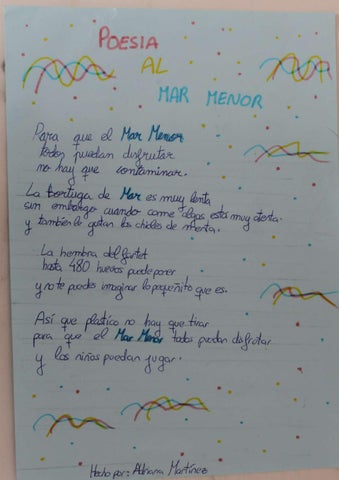 POESIA
AL
MAR MENOR
Para que el Mar Menor
todos puedan disfrutar
no hay que contaminar.
La tortuga de Mar es muy lenta
sin embargo cuando come algas esta muy atenta.
y también le gustan los chicles de menta.
La hembra del fartet
hasta 480 huevos puede poner
y no te puedes imaginar lo pequeñito que es.
Así que plastico no hay que tirar
para que el Mar Menor todos puedan disfrutar
y los niños puedan jugar.
Hecho por: Adriana Martínez